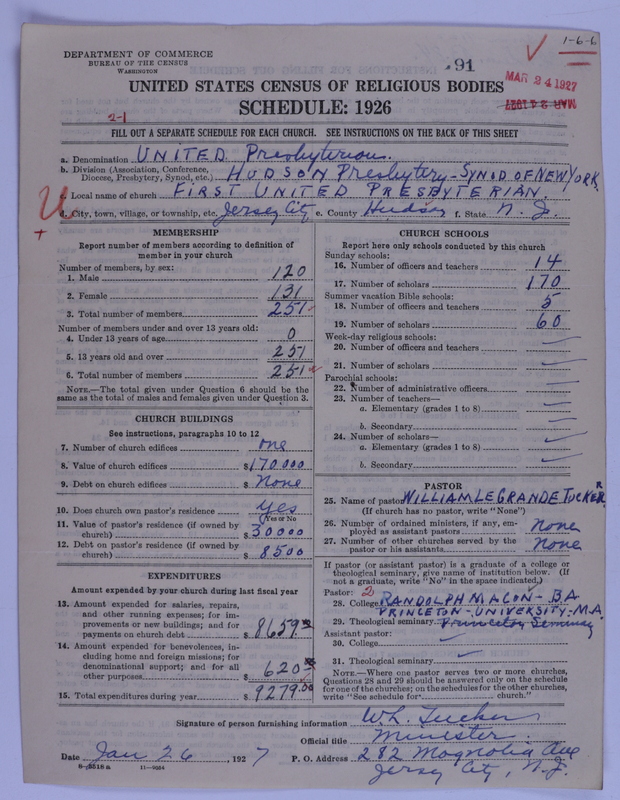 1-6-6
DEPARTMENT OF COMMERCE
BUREAU OF THE CENSUS
WASHINGTON
91
MAR 24 1927
MAR 24 1927
UNITED STATES CENSUS OF RELIGIOUS BODIES
SCHEDULE: 1926
2-1
FILL OUT A SEPARATE SCHEDULE FOR EACH CHURCH. SEE INSTRUCTIONS ON THE BACK OF THIS SHEET
a. Denomination UNITED Presbyterian.
b. Division (Association, Conference, Diocese, Presbytery, Synod, etc.) HUDSON Presbytery - SYNOD OF NEW YORK
c. Local name of church FIRST UNITED PRESBYTERIAN.
d. City, town, village, or township, etc. Jersey City e. County Hudson f. State N. J.
MEMBERSHIP
Report number of members according to definition of
member in your church
Number of members, by sex:
1. Male 120
2. Female 131
3. Total number of members 251
Number of members under and over 13 years old:
4. Under 13 years of age 0
5. 13 years old and over 251
6. Total number of members 251
NOTE.—The total given under Question 6 should be the
same as the total of males and females given under Question 3.
CHURCH BUILDINGS
See instructions, paragraphs 10 to 12
7. Number of church edifices one
8. Value of church edifices $170.000
9. Debt on church edifices $ None
10. Does church own pastor's residence yes
(Yes or No)
11. Value of pastor's residence (if owned by
church) $30000
12. Debt on pastor's residence (if owned by
church) $8500
EXPENDITURES
Amount expended by your church during last fiscal year
13. Amount expended for salaries, repairs,
and other running expenses; for im-
provements or new buildings; and for
payments on church debt $8659
14. Amount expended for benevolences, in-
cluding home and foreign missions; for
denominational support; and for all
other purposes $620
15. Total expenditures during year $9279.00
CHURCH SCHOOLS
Report here only schools conducted by this church
Sunday schools:
16. Number of officers and teachers 14
17. Number of scholars 170
Summer vacation Bible schools:
18. Number of officers and teachers 5
19. Number of scholars 60
Week-day religious schools:
20. Number of officers and teachers
21. Number of scholars
Parochial schools:
22. Number of administrative officers
23. Number of teachers—
a. Elementary (grades 1 to 8)
b. Secondary
24. Number of scholars—
a. Elementary (grades 1 to 8)
b. Secondary
PASTOR
25. Name of pastor WILLIAM LE GRANDE TUCKER
(If church has no pastor, write "None")
26. Number of ordained ministers, if any, em-
ployed as assistant pastors none
27. Number of other churches served by the
pastor or his assistants none
If pastor (or assistant pastor) is a graduate of a college or
theological seminary, give name of institution below. (If
not a graduate, write "No" in the space indicated.)
Pastor: 2
28. College RANDOLPH MACON - B.A
PRINCETON - UNIVERSITY - M.A.
29. Theological seminary Princeton Seminary
Assistant pastor:
30. College
31. Theological seminary
NOTE.—Where one pastor serves two or more churches,
Questions 28 and 29 should be answered only on the schedule
for one of the churches; on the schedules for the other churches,
write "See schedule for church."
Signature of person furnishing information W. L. Tucker
Official title Minister
Date Jan 26, 1927 P. O. Address 282 Magnolia Ave
Jersey City, N. J.
8-8518a 11-9564